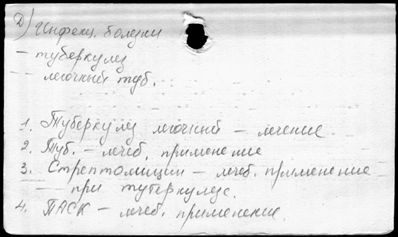 Д) Инфекц. болезни
– туберкулез
– легочный туб.
1. Туберкулез легочный – лечение
2. Туб. – лечеб. применение
3. Стрептомицин – лечеб. применение
– при туберкулезе.
4. ПАСК – лечеб. применение.